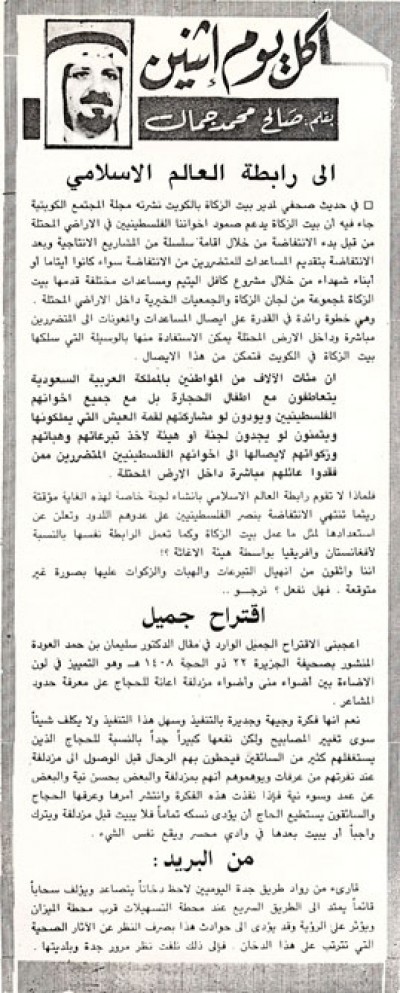 كل يوم إثنين
بقلم: صالح محمد جمال
الى رابطة العالم الاسلامي
□ في حديث صحفي لمدير بيت الزكاة بالكويت نشرته مجلة المجتمع الكويتية
جاء فيه أن بيت الزكاة يدعم صمود اخواننا الفلسطينيين في الاراضي المحتلة
من قبل بدء الانتفاضة من خلال اقامة سلسلة من المشاريع الانتاجية وبعد
الانتفاضة بتقديم المساعدات للمتضررين من الانتفاضة سواء كانوا أيتاما أو
أبناء شهداء من خلال مشروع كافل اليتيم ومساعدات مختلفة قدمها بيت
الزكاة لمجموعة من لجان الزكاة والجمعيات الخيرية داخل الاراضي المحتلة .
وهي خطوة رائدة في القدرة على ايصال المساعدات والمعونات الى المتضررين
مباشرة وداخل الارض المحتلة يمكن الاستفادة منها بالوسيلة التي سلكها
بيت الزكاة في الكويت فتمكن من هذا الايصال .
ان مئات الآلاف من المواطنين بالمملكة العربية السعودية
يتعاطفون مع اطفال الحجارة بل مع جميع اخوانهم
الفلسطينيين ويودون لو مشاركتهم لقمة العيش التي يملكونها
ويتمنون لو يجدون لجنة أو هيئة لأخذ تبرعاتهم وهباتهم
وزكواتهم لايصالها الى اخوانهم الفلسطينيين المتضررين ممن
فقدوا عائلهم مباشرة داخل الارض المحتلة .
فلماذا لا تقوم رابطة العالم الاسلامي بانشاء لجنة خاصة لهذه الغاية مؤقتة
ريثما تنتهي الانتفاضة بنصر الفلسطينيين على عدوهم اللدود وتعلن عن
استعدادها لمثل ما عمل بيت الزكاة وكما تعمل الرابطة نفسها بالنسبة
لأفغانستان وافريقيا بواسطة هيئة الاغاثة ؟!
اننا واثقون من انهيال التبرعات والهبات والزكوات عليها بصورة غير
متوقعة . فهل نفعل ؟ نرجـو ..
اقتراح جميل
اعجبنى الاقتراح الجميل الوارد في مقال الدكتور سليمان بن حمد العودة
المنشور بصحيفة الجزيرة ٢٢ ذو الحجة ١٤٠٨ هـ وهو التمييز في لون
الاضاءة بين أضواء منى وأضواء مزدلفة اعانة للحجاج على معرفة حدود
المشاعر .
نعم انها فكرة وجيهة وجديرة بالتنفيذ وسهل هذا التنفيذ ولا يكلف شيئاً
سوى تغيير المصابيح ولكن نفعها كبيراً جداً بالنسبة للحجاج الذين
يستغفلهم كثير من السائقين فيحطون بهم الرحال قبل الوصول الى مزدلفة
عند نفرتهم من عرفات ويوهموهم أنهم بمزدلفة والبعض بحسن نية والبعض
عن عمد وسوء نية فإذا نفذت هذه الفكرة وانتشر أمرها وعرفها الحجاج
والسائقون يستطيع الحاج أن يؤدى نسكه تماماً فلا يبيت قبل مزدلفة ويترك
واجباً أو يبيت بعدها في وادي محسر ويقع نفس الشيء .
من البريد:
قارىء من رواد طريق جدة اليوميين لاحظ دخاناً يتصاعد ويؤلف سحاباً
قائماً يمتد الى الطريق السريع عند محطة التسهيلات قرب محطة الميزان
ويؤثر على الرؤية وقد يؤدى الى حوادث هذا بصرف النظر عن الآثار الصحية
التي تترتب على هذا الدخان . فإلى ذلك نلفت نظر مرور جدة وبلديتها .